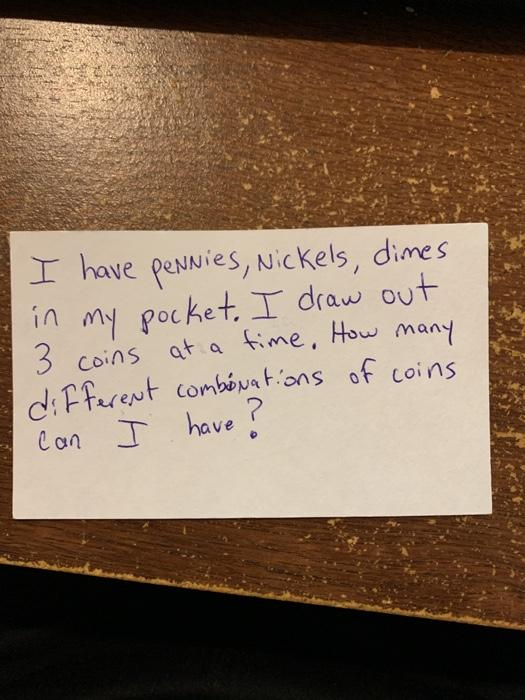 I have pennies, nickels, dimes
in my pocket. I draw out
3 coins at a time. How many
different combinations of coins
can I have?